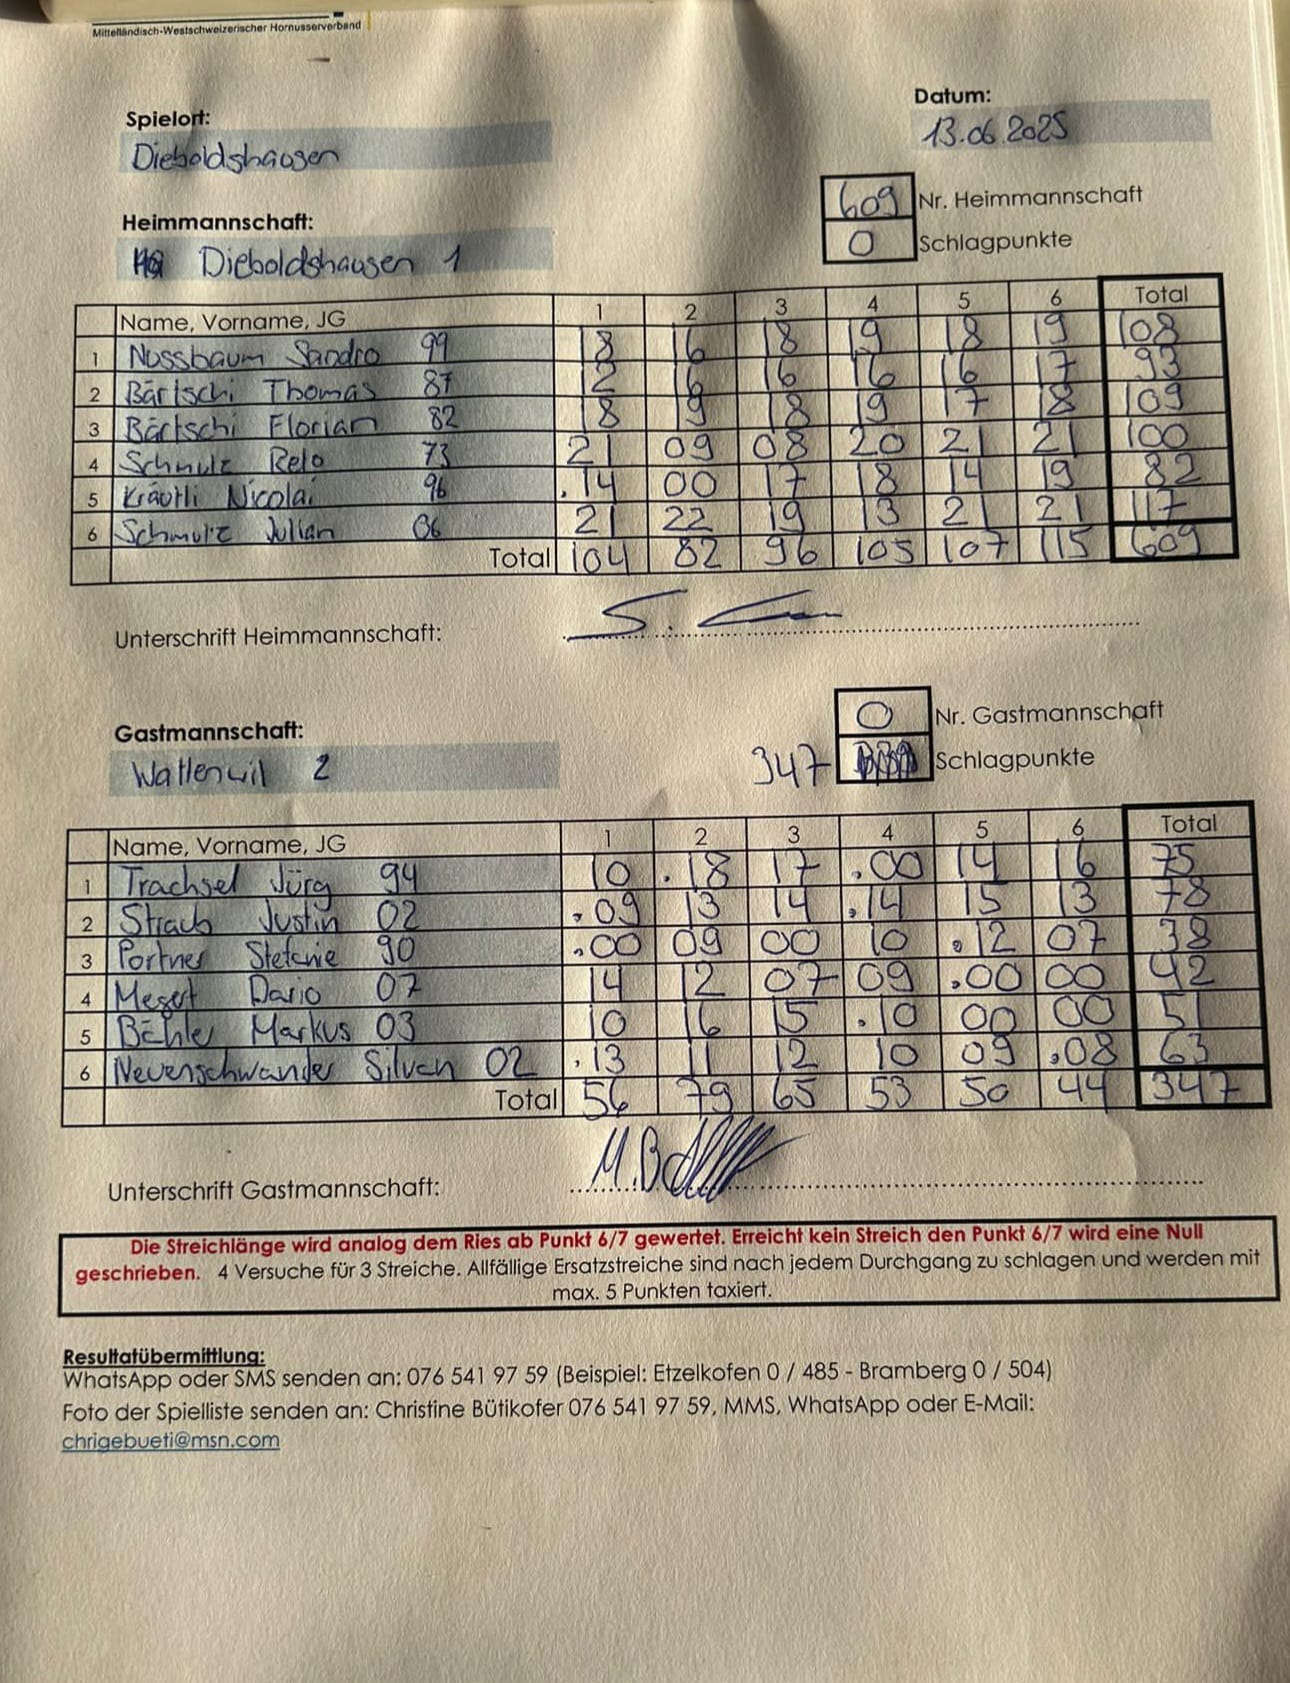 Mittelländisch-Westschweizerischer Hornusserverband
Datum:
13.06.2025
Spielort:
Dieboldshausen
609 Nr. Heimmannschaft
0 Schlagpunkte
Heimmannschaft:
Dieboldshausen 1
Name, Vorname, JG 1 2 3 4 5 6 Total
1 Nussbaum Sandro 99 18 16 18 19 18 19 108
2 Bärtschi Thomas 87 12 16 16 16 16 17 93
3 Bärtschi Florian 82 18 19 18 19 17 18 109
4 Schmutz Reto 73 21 09 08 20 21 21 100
5 Kräutli Nicolai 96 .14 00 17 18 14 19 82
6 Schmutz Julian 06 21 22 19 13 21 21 117
Total 104 82 96 105 107 115 609
Unterschrift Heimmannschaft:
0 Nr. Gastmannschaft
347 Schlagpunkte
Gastmannschaft:
Wattenwil 2
Name, Vorname, JG 1 2 3 4 5 6 Total
1 Trachsel Jürg 94 10 .18 17 .00 14 16 75
2 Straub Justin 02 .09 13 14 .14 15 13 78
3 Portner Stefanie 90 .00 09 00 10 .12 07 38
4 Messerli Dario 07 14 12 07 09 .00 00 42
5 Bähler Markus 03 10 16 15 .10 00 00 51
6 Neuenschwander Silvan 02 .13 11 12 10 09 .08 63
Total 56 79 65 53 50 44 347
Unterschrift Gastmannschaft:
Die Streichlänge wird analog dem Ries ab Punkt 6/7 gewertet. Erreicht kein Streich den Punkt 6/7 wird eine Null
geschrieben. 4 Versuche für 3 Streiche. Allfällige Ersatzstreiche sind nach jedem Durchgang zu schlagen und werden mit
max. 5 Punkten taxiert.
Resultatübermittlung:
WhatsApp oder SMS senden an: 076 541 97 59 (Beispiel: Etzelkofen 0 / 485 - Bramberg 0 / 504)
Foto der Spielliste senden an: Christine Bütikofer 076 541 97 59, MMS, WhatsApp oder E-Mail:
chrigebueti@msn.com